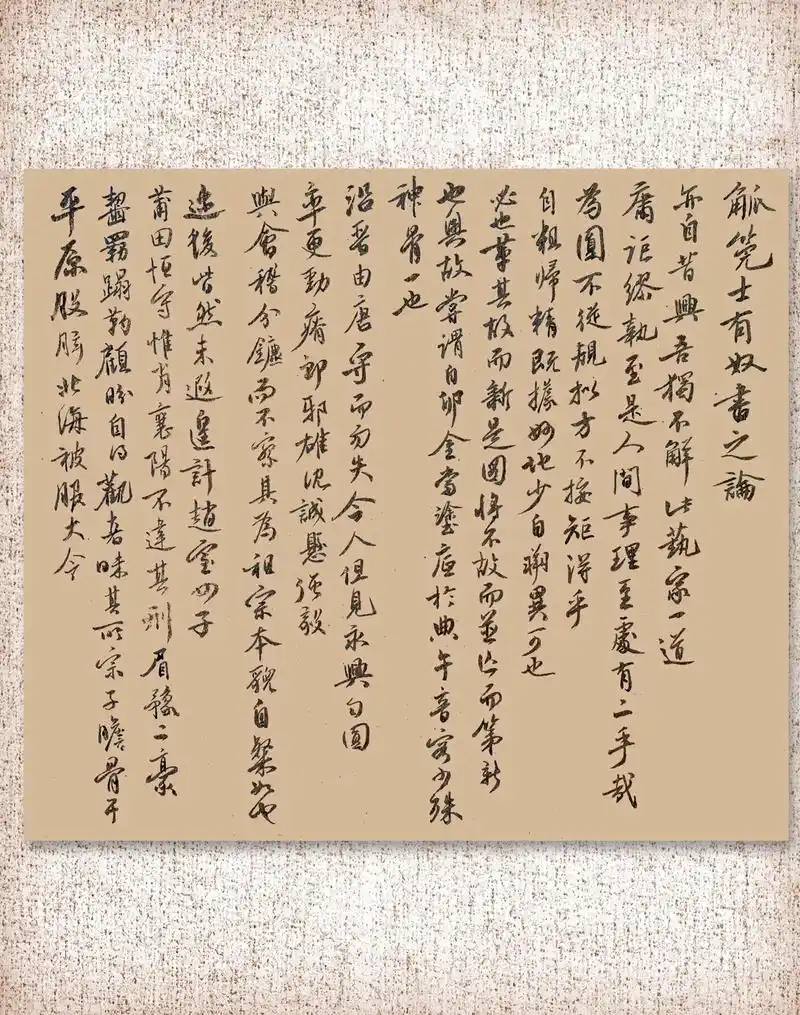 觚筦士有奴書之論
亦自昔興吾獨不解此藝家一道
庸詎繆執至是人間事理至處有二乎哉
為圓不從規拟方不按矩得乎
自粗歸精既據妙地少自翔異可也
必也革其故而新是圖將不故而並亡而第新
也與故嘗謂自卯金當塗底於典午音容少殊
神骨一也
沿晉由唐守而勿失今人但見永興勻圓
率更勁瘠郎邪雄沉誠懸強毅
與會稽分鑣而不察其為祖宗本貌自粲如也
迩後皆然未遐遑計趙室四子
莆田恒守惟肖襄陽不違其刑眉豫二豪
齧羈蹋勒顧盼自得觀者昧其所宗子瞻骨干
平原股肱北海被服大令